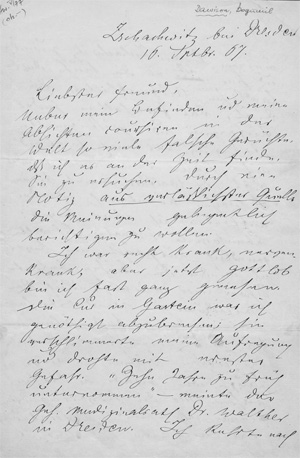 Dawison, Bogumil
Zschachwitz bei Dresden
16. Septbr. 67.
Liebster Freund,
Ueber mein Befinden und meine
Absichten coursiren in der
Welt so viele falsche Gerüchte,
daß ich es an der Zeit finde,
Sie zu ersuchen, durch eine
Notiz aus verlässlichster Quelle
die Meinungen gefälligst
berichtigen zu wollen.
Ich war recht krank, nerven-
krank, aber jetzt gottlob
bin ich fast ganz genesen.
Die Cur in Gastein war ich
genöthigt abzubrechen; sie
verschlimmerte meine Aufregung
und drohte mit ernster
Gefahr. "Zehn Jahre zu früh
unternommen" – meinte der
Geh. Medizinalrath Dr. Walther
in Dresden. Ich kehrte nach